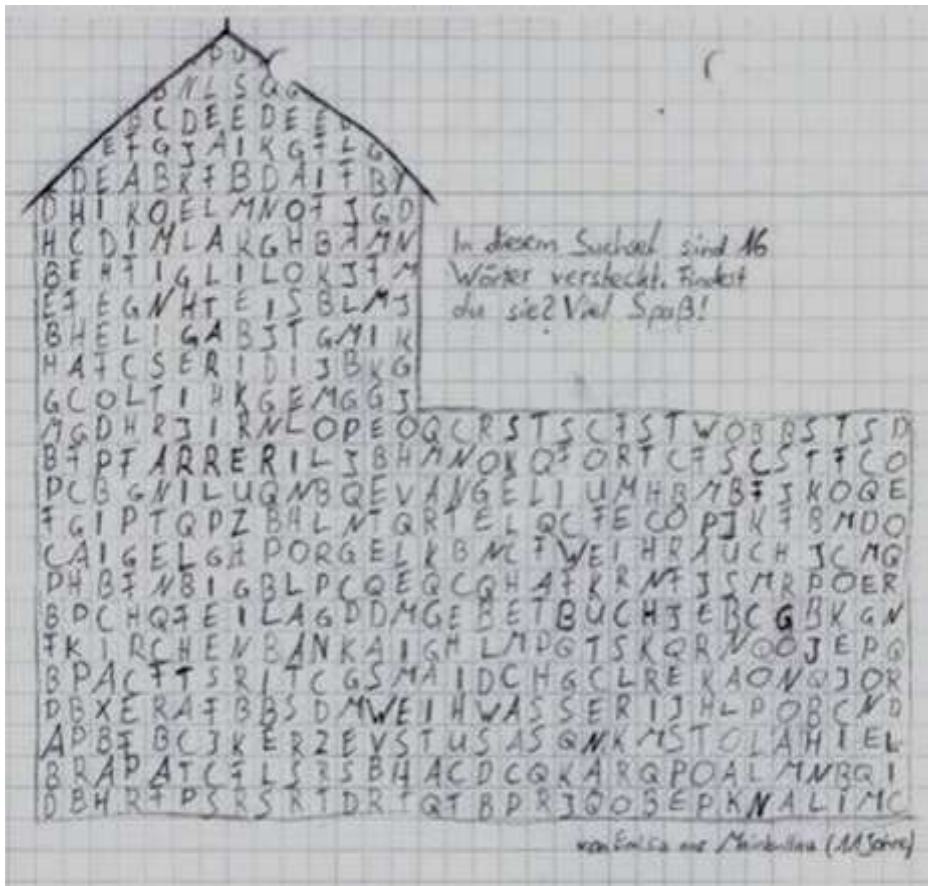 B N L S Q G
B C D E E D E E
E F G J A I K G F L G
D E A B K F B D A I F B
D H I K O E L M N O F J G D
H C D I M L A K G H B A M N
B E H F I G L I L O K J F M
In diesem Suchsel sind 16
Wörter versteckt. Findest
du sie? Viel Spaß!
E F E G N H T E I S B L M J
B H E L I G A B J T G M I K
H A F C S E R I D I J B K G
G C O L T I H K G E M G G J
M G D H R J I R N L O P E O Q C R S T S C F S T W O B B S T S D
B F P F A R R E R I L J B H M N O K Q F O R T C F S C S T F C O
P C B G N I L U Q N B Q E V A N G E L I U M H B M B F J K O Q E
F G I P T Q P Z B H L N T Q R T E L Q C F E C O P J K F B M D O
C A I G E L G H P O R G E L K B N C F W E I H R A U C H J C M Q
P H B F N B I G B L P C Q E Q C Q H A F K R N F J S M R P O E R
B P C H Q F E I L A G D D M G E B E T B U C H J E B C G B K G N
F K I R C H E N B A N K A I G H L M P G T S K Q R N Q O J E P Q
B P A C F T S R I T C G S M A I D C H G C L R E K A O N Q J O R
D B X E R A F B B S D M W E I H W A S S E R I J H L P O B C N D
A P B F B C J K E R Z E V S T U S A S Q N K M S T O L A H I E L
B R A P A T C F L S R S B H A C D C Q K A R Q P O A L M N B Q I
D B H R F P S R S R T D R T Q T B P R J Q O B E P K N A L I M C
von aus (11 Jahre)